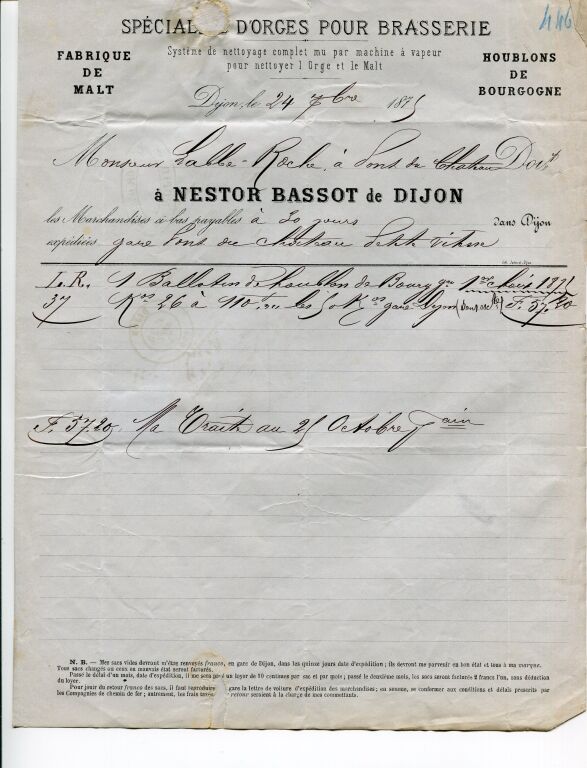 446
SPÉCIALITÉ D'ORGES POUR BRASSERIE
Système de nettoyage complet mu par machine à vapeur
pour nettoyer l Orge et le Malt
FABRIQUE
DE
MALT
HOUBLONS
DE
BOURGOGNE
Dijon, le 24 7bre 1875
Monsieur Labbé-Roche, à Pont du Chateau Doit
à NESTOR BASSOT de DIJON
les Marchandises ci-bas payables à 30 jours dans Dijon
expédiées gare Pont du Château Petite Vitesse
L.R. 1 Ballotin de houblon de Bourgogne 1er choix 1875
37 Kos 26 à 110 F les 50 Kos gare Dijon F. 57.20
F. 57.20 Ma Traite au 25 Octobre
N. B. — Mes sacs vides devront m'être renvoyés franco, en gare de Dijon, dans les quinze jours date d'expédition ; ils devront me parvenir en bon état et tous à ma marque.
Tous sacs changés ou ceux en mauvais état seront facturés.
Passé le délai d'un mois, date d'expédition, il me sera payé un loyer de 10 centimes par sac et par mois ; passé le deuxième mois, les sacs seront facturés 2 francs l'un, sans déduction
du loyer.
Pour jouir du retour franco des sacs, il faut reproduire en gare la lettre de voiture d'expédition des marchandises ; en somme, se conformer aux conditions et délais prescrits par
les Compagnies de chemin de fer ; autrement, les frais de retour seraient à la charge de mes commettants.